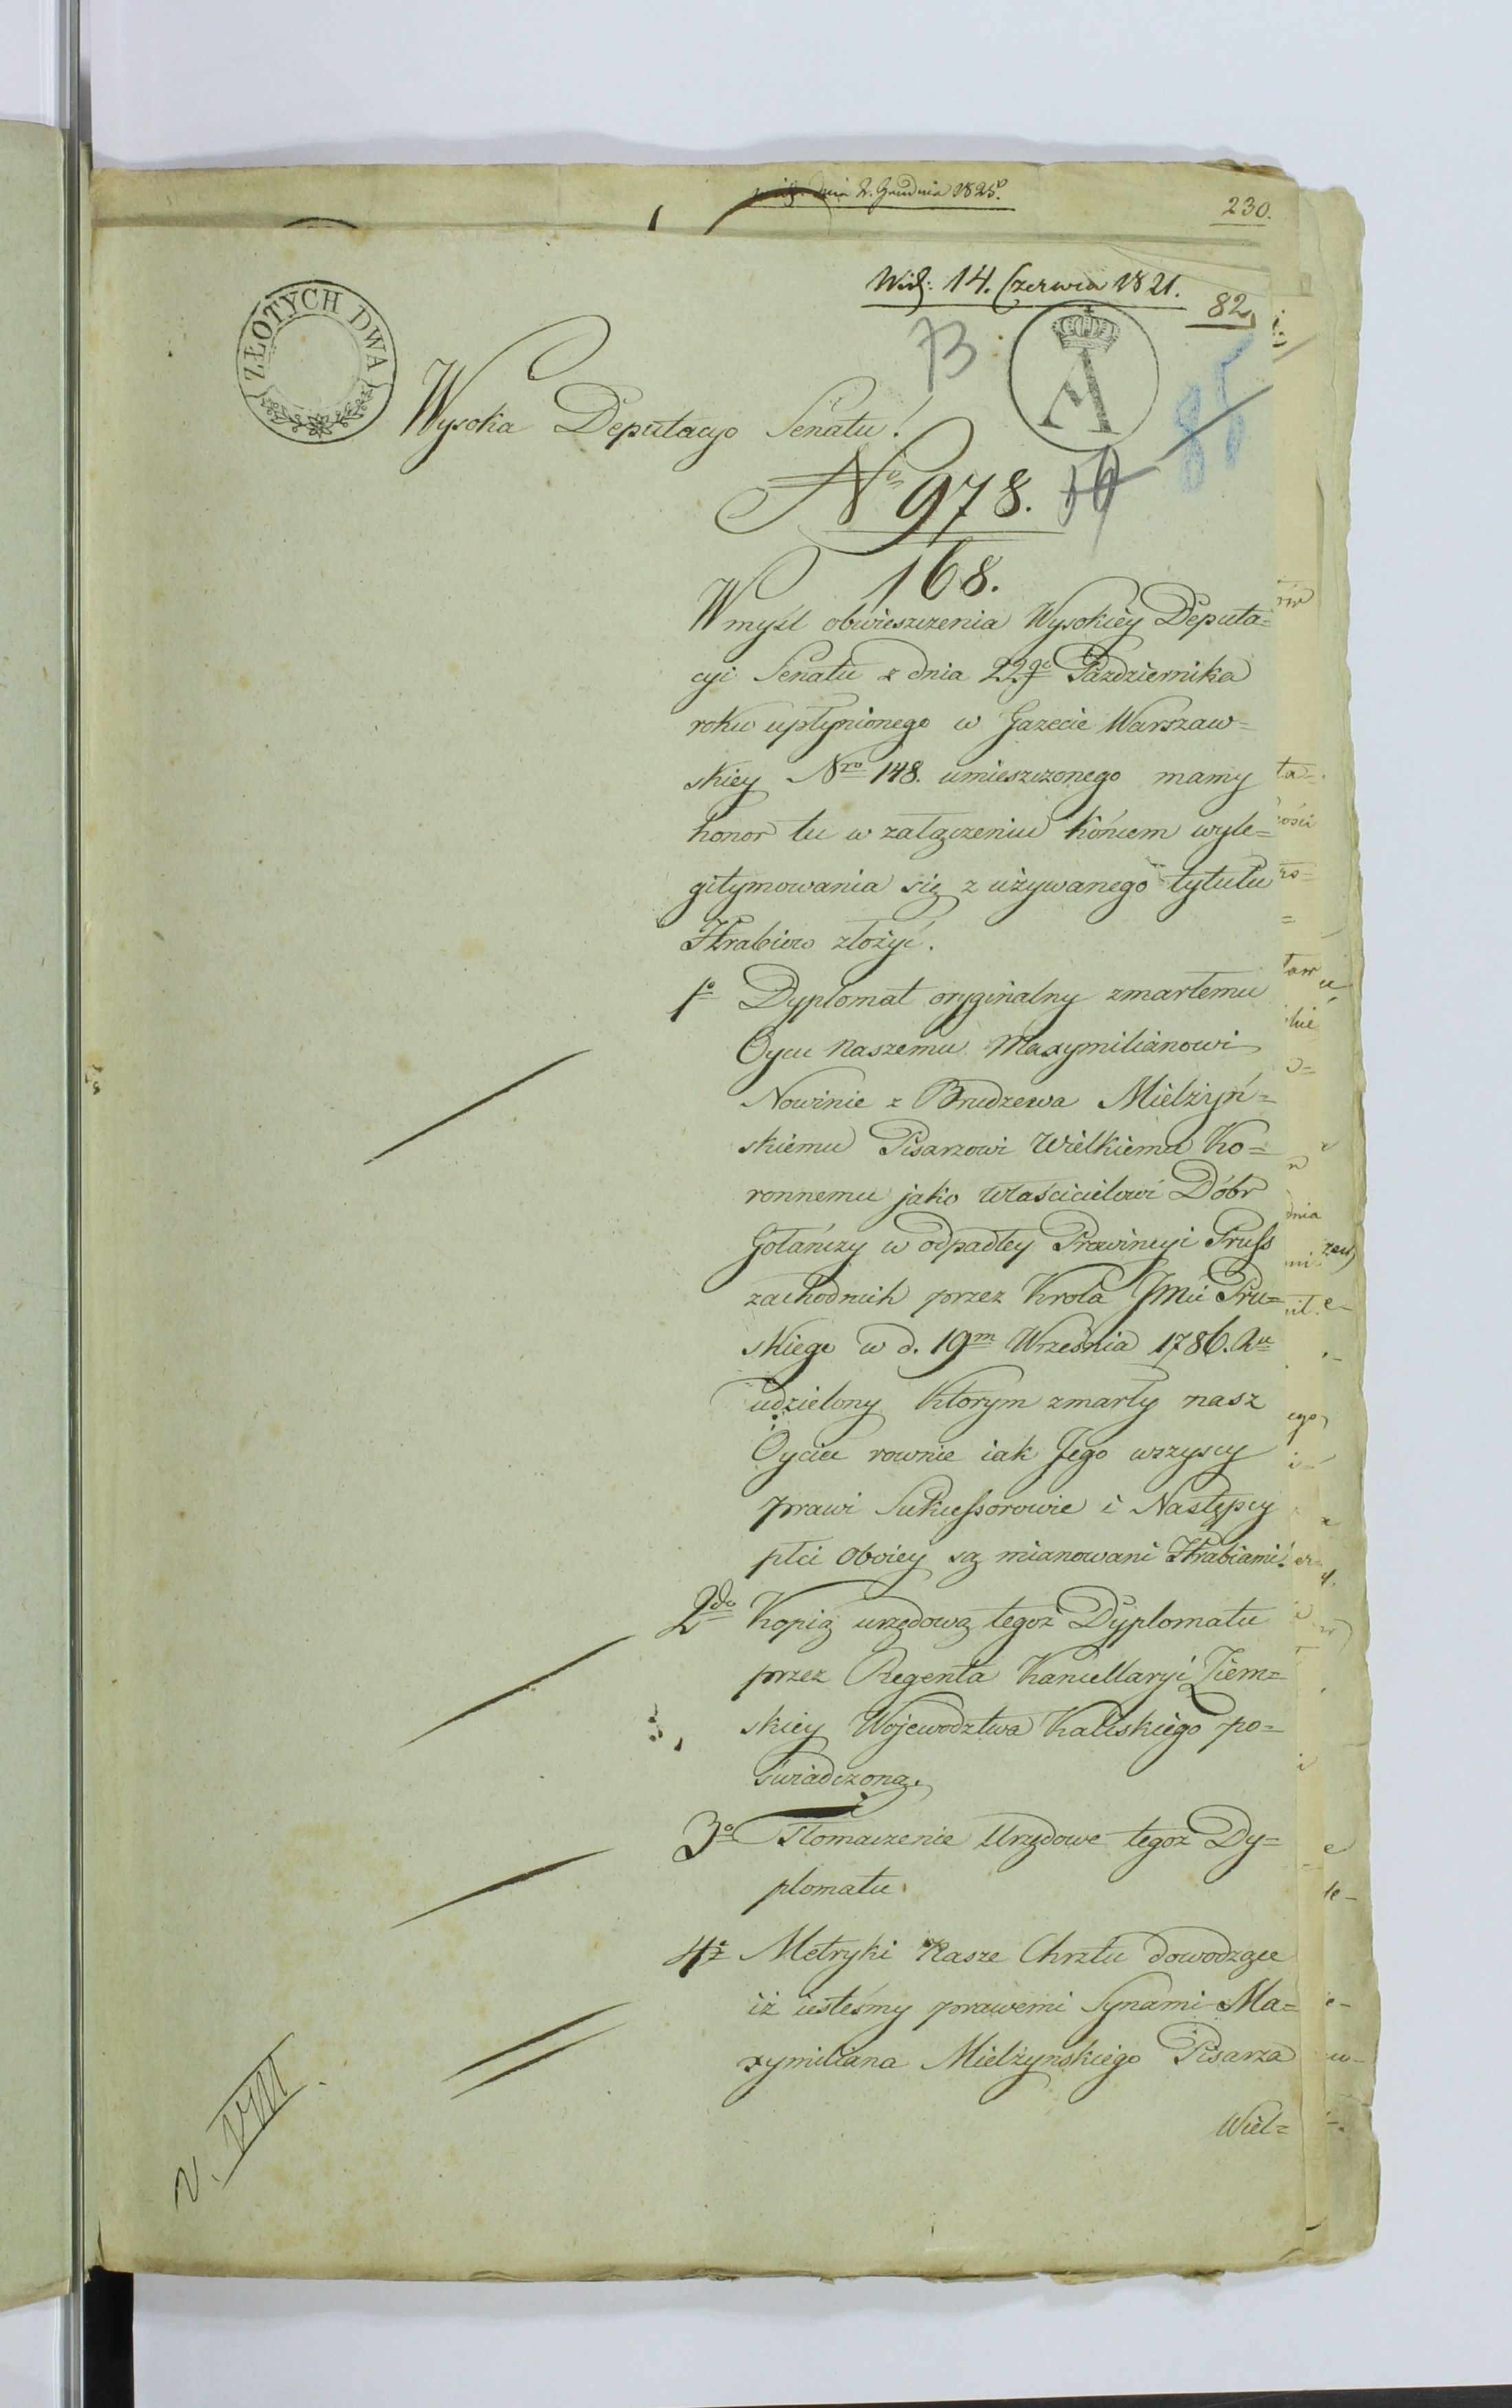 dnia 2. Grudnia 1825.
230.
Wid: 14. Czerwca 1821.
82
73
85
ZŁOTYCH DWA
A
Wysoka Deputacyo Senatu!
No 978.
168.
W myśl obwieszczenia Wysokiey Deputa=
cyi Senatu z dnia 22go Pazdziernika
roku upłynionego w Gazecie Warszaw=
skiey Nro 148. umieszczonego mamy
honor tu w załączeniu końcem wyle=
gitymowania się z używanego tytułu
Hrabiow złożyć.
1o Dyplomat oryginalny zmarłemu
Oycu Naszemu Maxymilianowi
Nowinie z Brudzewa Mielżyń=
skiemu Pisarzowi Wielkiemu Ko=
ronnemu jako właścicielowi Dóbr
Gołańczy w odpadłey Prowincyi Pruss
zachodnich przez Krola JMci Pru=
skiego w d. 19m Września 1786. Ru
udzielony ktorym zmarły nasz
Oyciec rownie iak Jego wszyscy
prawi Sukcessorowie i Następcy
płci oboiey są mianowani Hrabiami.
2do Kopią urzędową tegoż Dyplomatu
przez Regenta Kancellaryi Ziem=
skiey Wojewodztwa Kaliskiego po=
świadczoną.
3o Tłomaczenie Urzędowe tegoż Dy=
plomatu.
4o Metryki Nasze Chrztu dowodzące
iż iesteśmy prawemi Synami Ma=
xymiliana Mielżynskiego Pisarza
Wiel=
v. VIII.